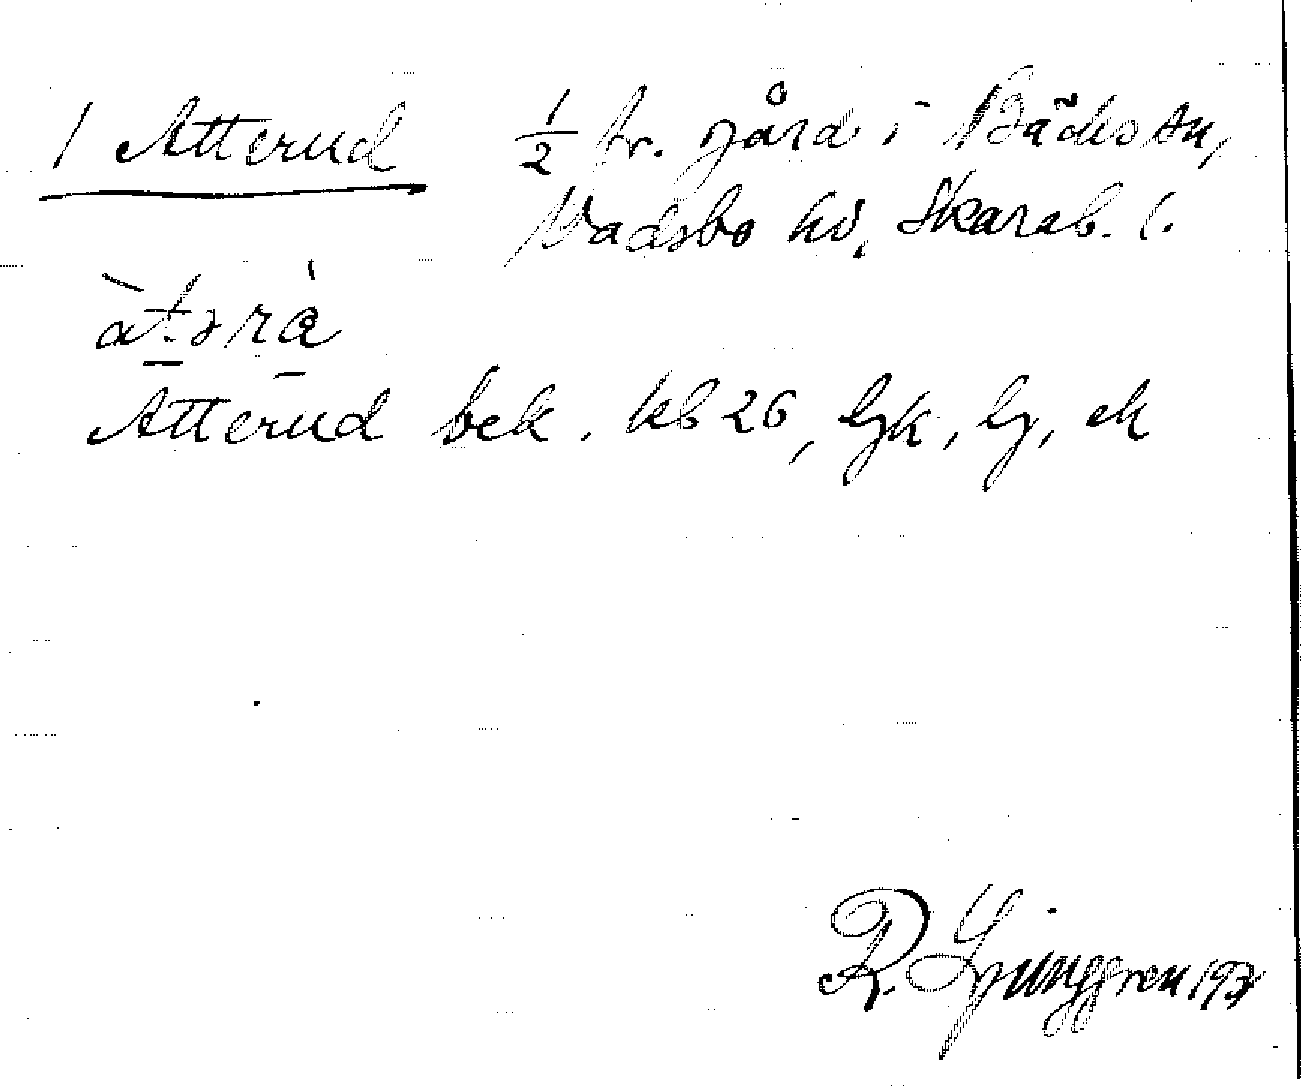 1 Atterud ½ fr. gård i Bäcks sn,
Vadsbo hd, Skarab. l.
àt.ərà
Atterud bek. kb 26, lgk, lg, ek
R. Ljunggren